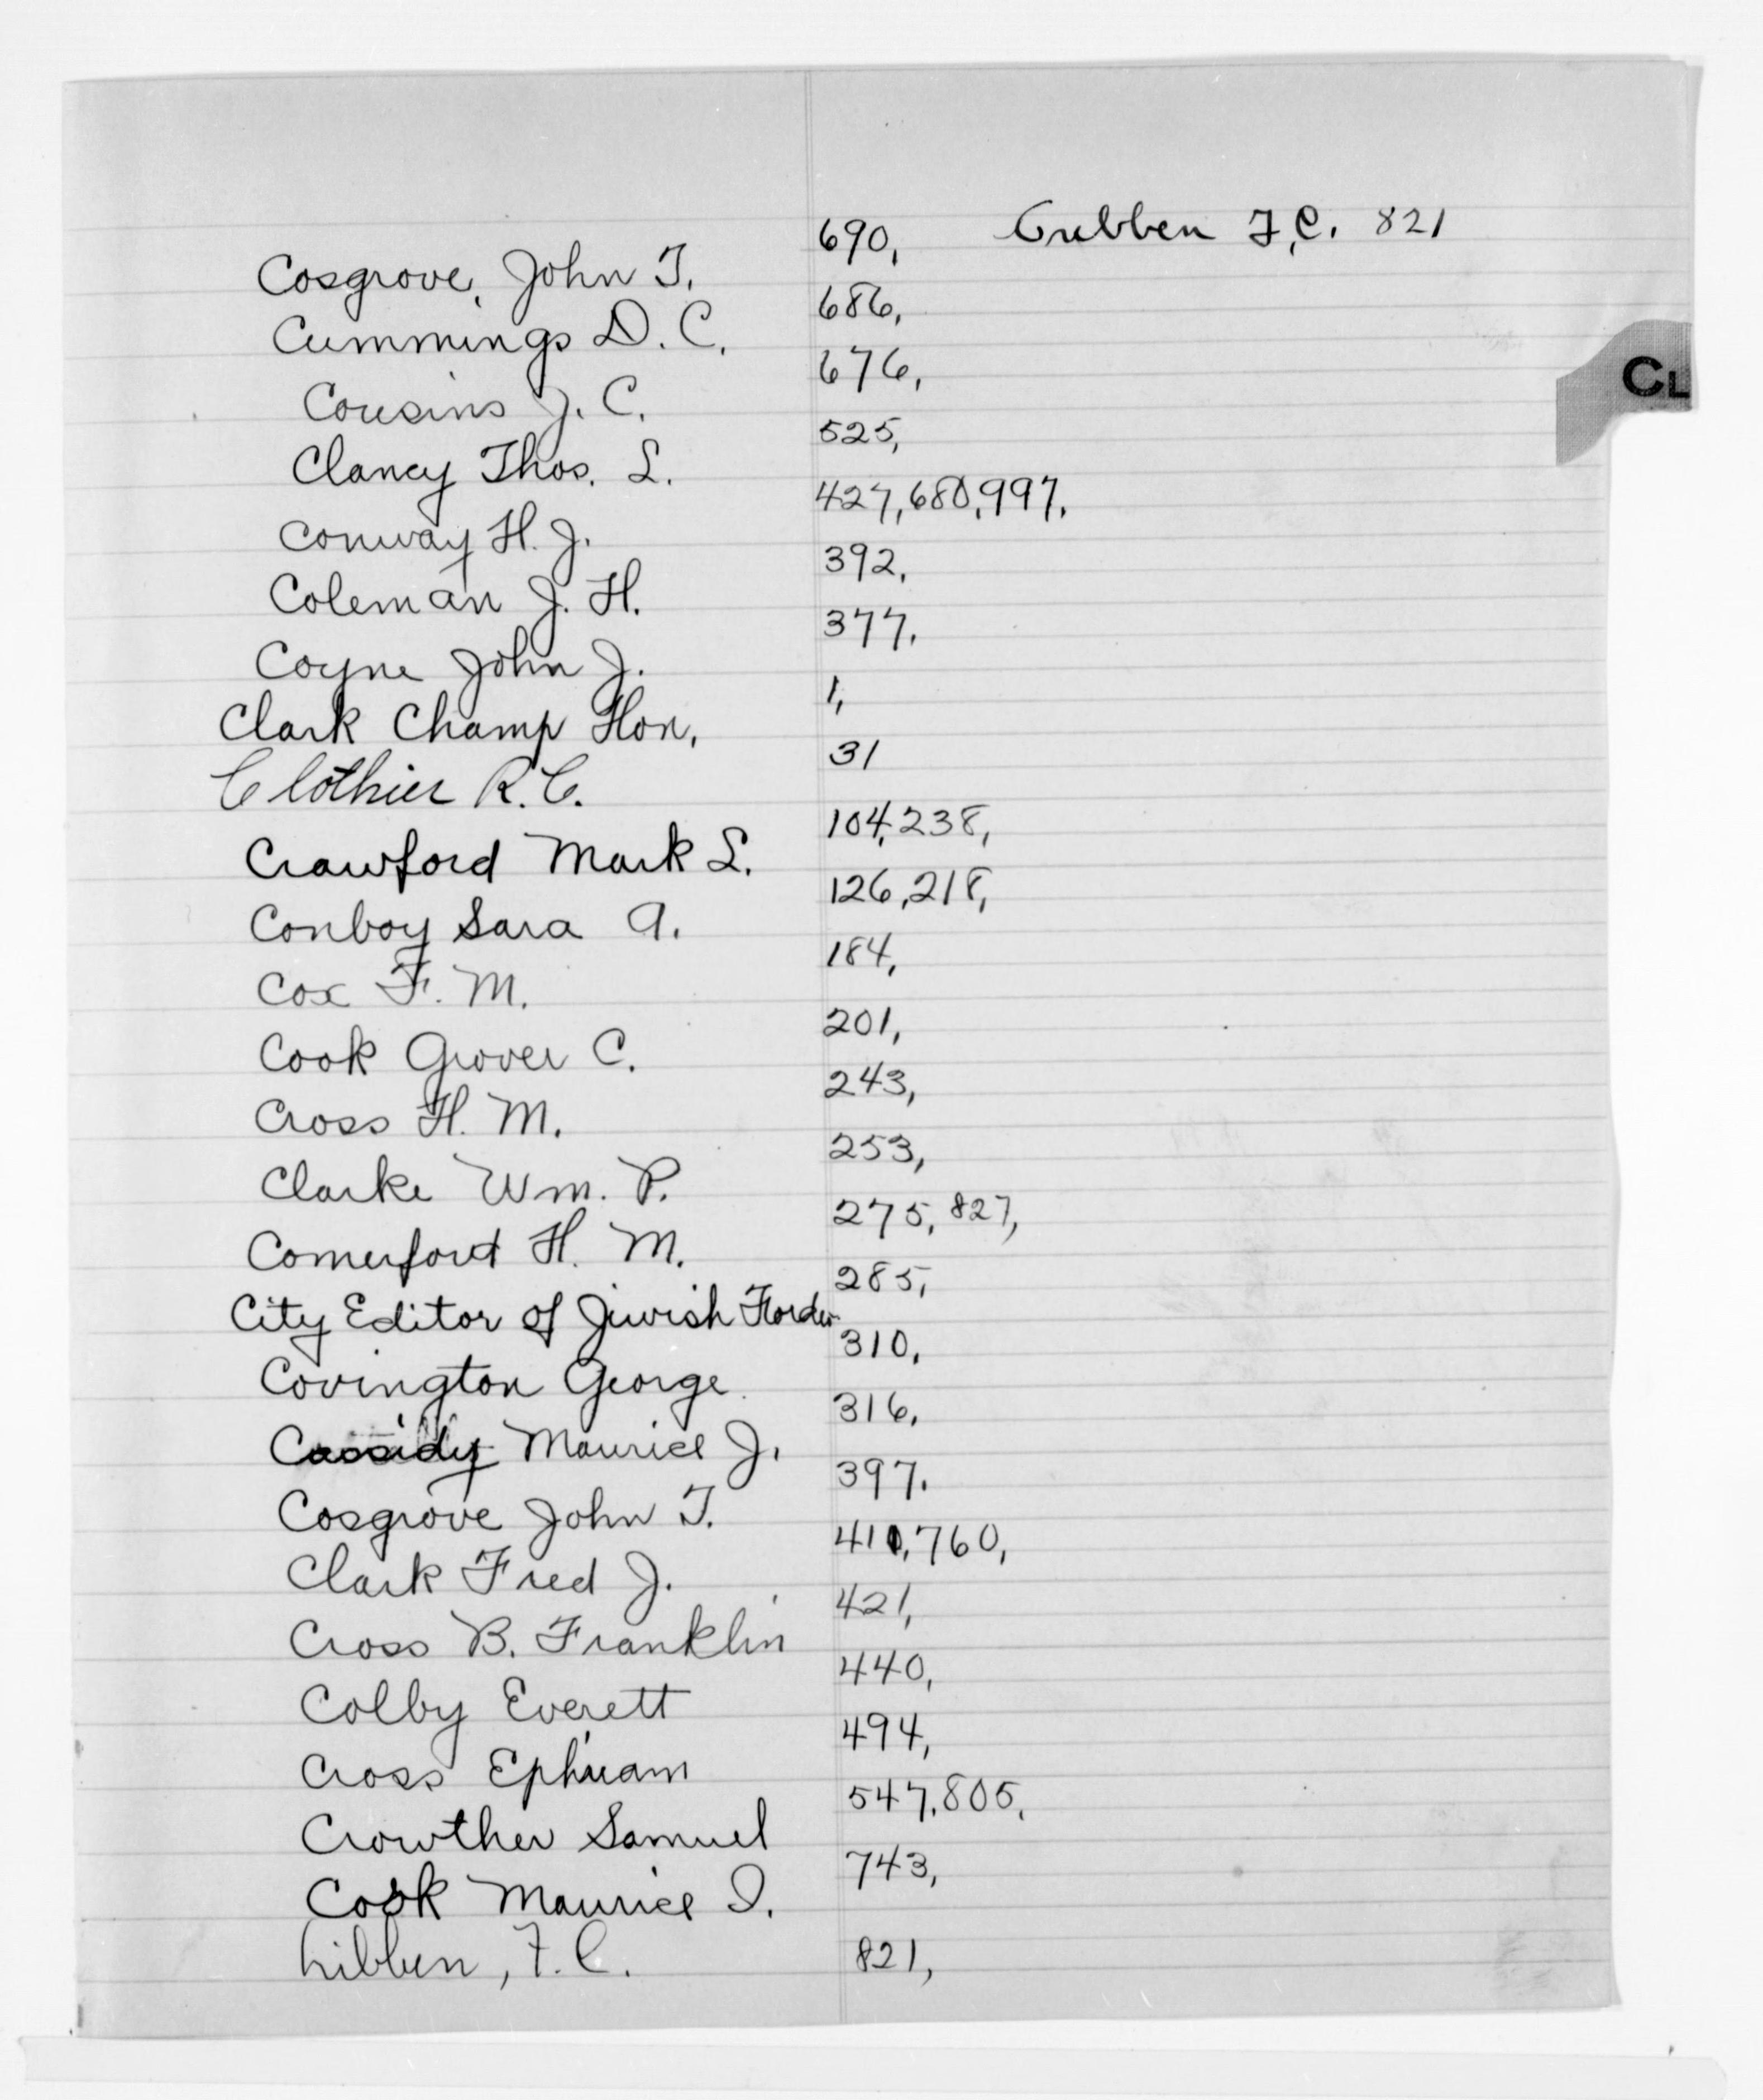 Cribben F.C. 821
Cosgrove, John T. 690,
Cummings D. C. 686,
Cousins J. C. 676,
Clancy Thos. L. 525,
Conway H. J. 427, 680, 997,
Coleman J. H. 392,
Coyne John J. 377,
Clark Champ Hon. 1,
Clothier R. C. 31
Crawford Mark L. 104, 238,
Conboy Sara A. 126, 218,
Cox F. M. 184,
Cook Grover C. 201,
Cross H. M. 243,
Clarke Wm. P. 253,
Comerford H. M. 275, 827,
City Editor of Jewish 285,
Covington George 310,
Cassidy Maurice J. 316,
Cosgrove John T. 397,
Clark Fred J. 760,
Cross B. Franklin 421,
Colby Everett 440,
Cross Ephraim 494,
Crowther Samuel 547, 805,
Cook Maurice I. 743,
F. C. 821,
CL